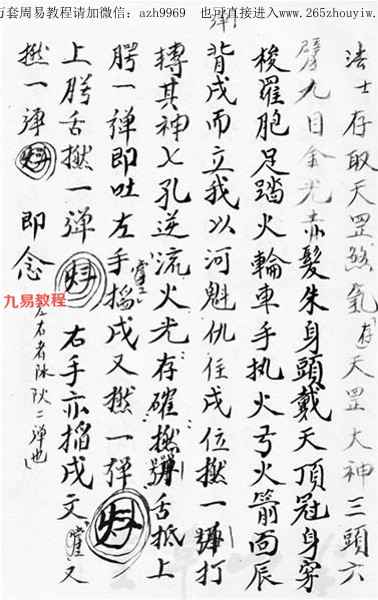 万套周易教程请加微信：azh9969 也可直接进入www.265zhouyiw.
法士存取天罡煞氣存天罡大神三頭六
臂九目金光赤髮朱身頭戴天頂冠身穿
梭羅胞足踏火輪車手执火弓火箭面辰
背戌而立我以河魁仇住戌位撚一彈打
轉其神七孔逆流火光存確撚彈舌抵上
腭一弹即吐左手搯戌又撚一弹
上腭舌撚一弹 右手亦搯戌文 又
撚一弹 即念
九易教程
左右者陈 二弹也